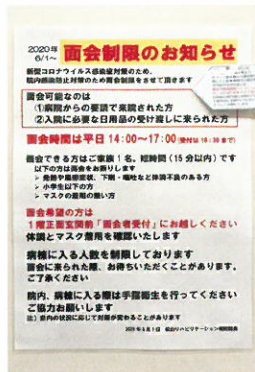 2020年
6/1～
面会制限のお知らせ
新型コロナウイルス感染症対策のため、
院内感染防止対策のため面会制限をさせて頂きます
面会可能なのは
①病院からの要請で来院された方
②入院に必要な日用品の受け渡しに来られた方
面会時間は平日 14:00～17:00(受付は16:30まで)
面会できる方はご家族1名、短時間（15分以内）です
以下の方は面会をお断りします
➢ 発熱や風邪症状、下痢・嘔吐など体調不良のある方
➢ 小学生以下の方
➢ マスクの着用の無い方
面会希望の方は
1階正面玄関前「面会者受付」にお越しください
体調とマスク着用を確認いたします
病棟に入る人数を制限しております
面会に来られた際、お待ちいただくことがあります。
ご了承ください
院内、病棟に入る際は手指衛生を行ってください
ご協力お願いします
注）県内の状況に応じて対策が変わることがあります
2020年6月1日 松山リハビリテーション病院院長